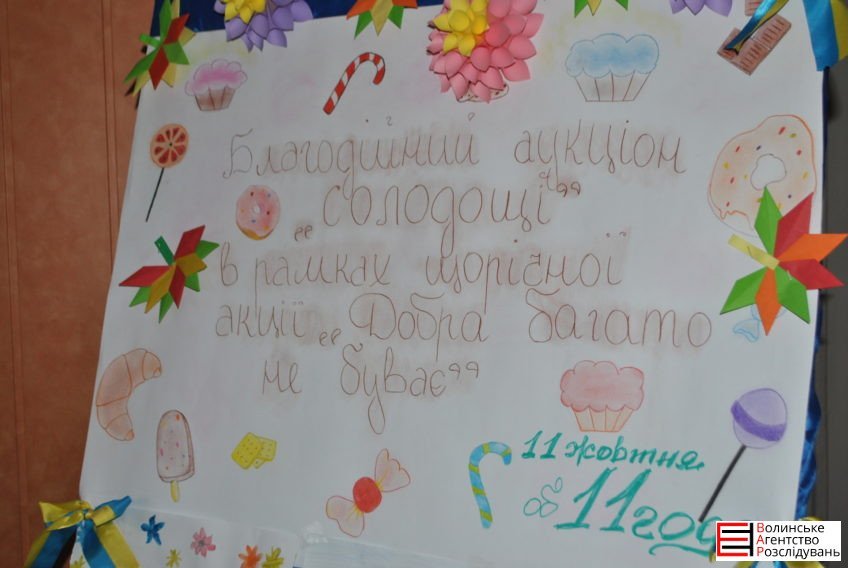 Благодійний аукціон
„солодощі"
в рамках щорічної
акції „Добра багато
не буває"
11 жовтня
об 11 год
Волинське
Агентство
Розслідувань